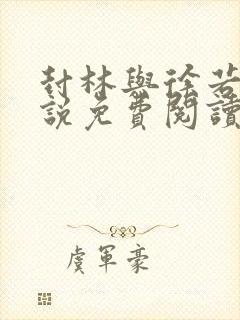 封林與徐若
說免費閱讀
虞軍豪